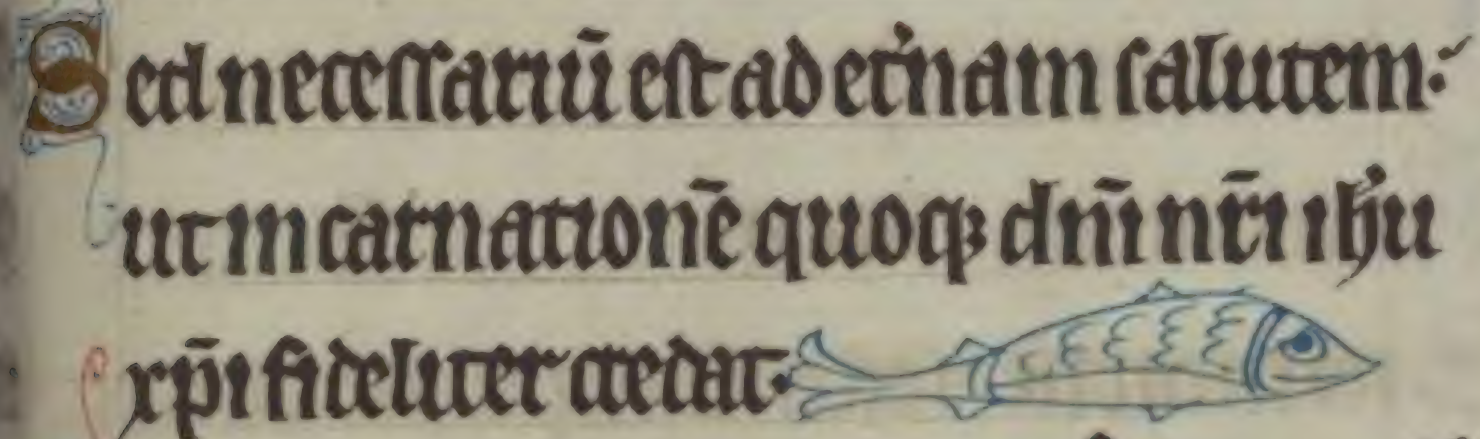 Sed necessariū est ad et'nam salutem:
ut incarnationē quoq₃ dn̄i nr̄i ih'u
xp̄i fideliter credat.